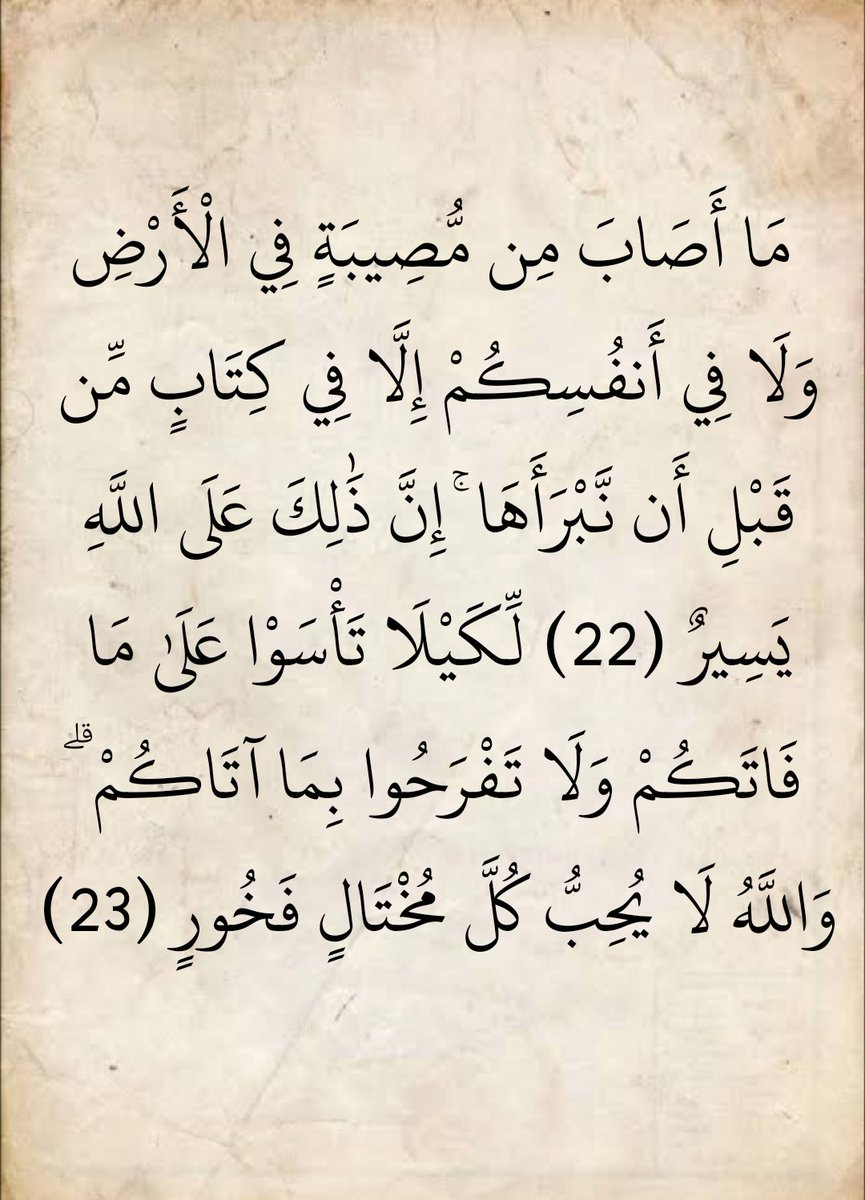 مَا أَصَابَ مِن مُّصِيبَةٍ فِي الْأَرْضِ
وَلَا فِي أَنفُسِكُمْ إِلَّا فِي كِتَابٍ مِّن
قَبْلِ أَن نَّبْرَأَهَا ۚ إِنَّ ذَٰلِكَ عَلَى اللَّهِ
يَسِيرٌ (22) لِّكَيْلَا تَأْسَوْا عَلَىٰ مَا
فَاتَكُمْ وَلَا تَفْرَحُوا بِمَا آتَاكُمْ ۗ
وَاللَّهُ لَا يُحِبُّ كُلَّ مُخْتَالٍ فَخُورٍ (23)